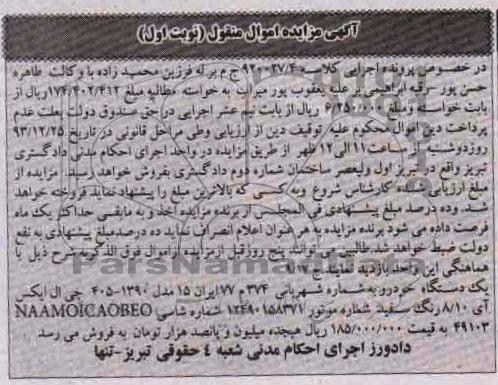 آگهی مزایده اموال منقول (نوبت اول)
در خصوص پرونده اجرایی کلاسه ۹۲۰۰۲۷/۴ ج.م برله فرزین محمدزاده با وکالت طاهره
حسن پور -رقیه ابراهیمی بر علیه یعقوب پور میراب به خواسته مطالبه مبلغ ۱۷۴/۴۰۲/۴۱۲ ریال از
بابت خواسته و مبلغ ۶/۲۵۰/۰۰۰ ریال از بابت نیم عشر اجرایی در حق صندوق دولت بعلت عدم
پرداخت دین اموال محکوم علیه توقیف دین از ارزیابی وطی مراحل قانونی در تاریخ ۹۳/۱۲/۲۵
روز دوشنبه از ساعت ۱۱ الی ۱۲ ظهر از طریق مزایده در واحد اجرای احکام مدنی دادگستری
تبریز واقع در تبریز اول ولیعصر ساختمان شماره دوم دادگستری بفروش خواهد رسید. مزایده از
مبلغ ارزیابی شده کارشناس شروع وبه کسی که بالاترین مبلغ را پیشنهاد نماید فروخته خواهد
شد. و ده درصد مبلغ پیشنهادی فی المجلس از برنده مزایده اخذ و به مابقی حداکثر یک ماه
فرصت داده می شود برنده مزایده به هر عنوان اعلام انصراف نماید ده درصد مبلغ پیشنهادی به نفع
دولت ضبط خواهد شد. طالبین می توانند پنج روز قبل از مزایده از اموال فوق الذکر بشرح ذیل با
هماهنگی این واحد بازدید نمایند.
یک دستگاه خودرو به شماره شهربانی ۳۷۴ م ۷۷ ایران ۱۵ مدل ۱۳۹۰- ۴۰۵ جی ال ایکس
آی ۸/۱۰ رنگ سفید شماره موتور ۱۲۴۹۰۱۵۸۳۷۱ شماره شاسی NAAMOICAOBEO
۴۹۱۰۳ به قیمت ۱۸۵/۰۰۰/۰۰۰ ریال هیجده میلیون و پانصد هزار تومان به فروش می رسد
دادورز اجرای احکام مدنی شعبه ۴ حقوقی تبریز-تنها
ParsNamadData